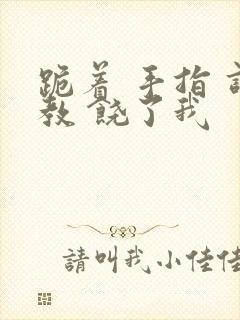 跪着 手指 
教 饶了我
請叫我小佳佳